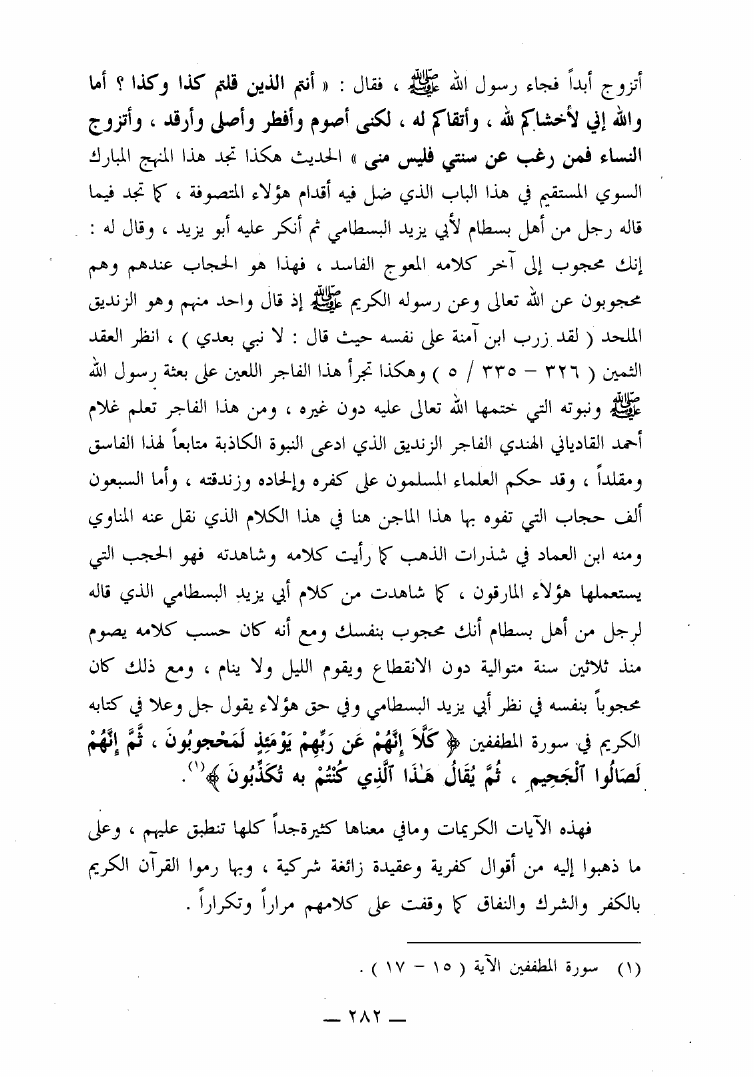 أتزوج أبداً فجاء رسول الله ﷺ ، فقال : « أنتم الذين قلتم كذا وكذا ؟ أما
والله إني لأخشاكم لله ، وأتقاكم له ، لكنى أصوم وأفطر وأصلى وأرقد ، وأتزوج
النساء فمن رغب عن سنتي فليس منى » الحديث هكذا تجد هذا المنهج المبارك
السوي المستقيم في هذا الباب الذي ضل فيه أقدام هؤلاء المتصوفة ، كما تجد فيما
قاله رجل من أهل بسطام لأبي يزيد البسطامي ثم أنكر عليه أبو يزيد ، وقال له :
إنك محجوب إلى آخر كلامه المعوج الفاسد ، فهذا هو الحجاب عندهم وهم
محجوبون عن الله تعالى وعن رسوله الكريم ﷺ إذ قال واحد منهم وهو الزنديق
الملحد ( لقد زرب ابن آمنة على نفسه حيث قال : لا نبي بعدي ) ، انظر العقد
الثمين ( ٣٢٦ – ٣٣٥ / ٥ ) وهكذا تجرأ هذا الفاجر اللعين على بعثة رسول الله
ﷺ ونبوته التي ختمها الله تعالى عليه دون غيره ، ومن هذا الفاجر تعلم غلام
أحمد القادياني الهندي الفاجر الزنديق الذي ادعى النبوة الكاذبة متابعاً لهذا الفاسق
ومقلداً ، وقد حكم العلماء المسلمون على كفره وإلحاده وزندقته ، وأما السبعون
ألف حجاب التي تفوه بها هذا الماجن هنا في هذا الكلام الذي نقل عنه المناوي
ومنه ابن العماد في شذرات الذهب كما رأيت كلامه وشاهدته فهو الحجب التي
يستعملها هؤلاء المارقون ، كما شاهدت من كلام أبي يزيد البسطامي الذي قاله
لرجل من أهل بسطام أنك محجوب بنفسك ومع أنه كان حسب كلامه يصوم
منذ ثلاثين سنة متوالية دون الانقطاع ويقوم الليل ولا ينام ، ومع ذلك كان
محجوباً بنفسه في نظر أبي يزيد البسطامي وفي حق هؤلاء يقول جل وعلا في كتابه
الكريم في سورة المطففين ﴿ كَلَّا إِنَّهُمْ عَن رَبِّهِمْ يَوْمَئِذٍ لَمَحْجوبُونَ ، ثُمَّ إِنَّهُمْ
لَصَالُوا ٱلْجَحيم ، ثُمَّ يُقَالُ هَـٰذَا ٱلَّذِي كُنْتُمْ به تُكَذِّبُونَ ﴾(١).
فهذه الآيات الكريمات ومافي معناها كثيرة جداً كلها تنطبق عليهم ، وعلى
ما ذهبوا إليه من أقوال كفرية وعقيدة زائغة شركية ، وبها رموا القرآن الكريم
بالكفر والشرك والنفاق كما وقفت على كلامهم مراراً وتكراراً .
(١) سورة المطففين الآية ( ١٥ – ١٧ ) .
— ٢٨٢ —